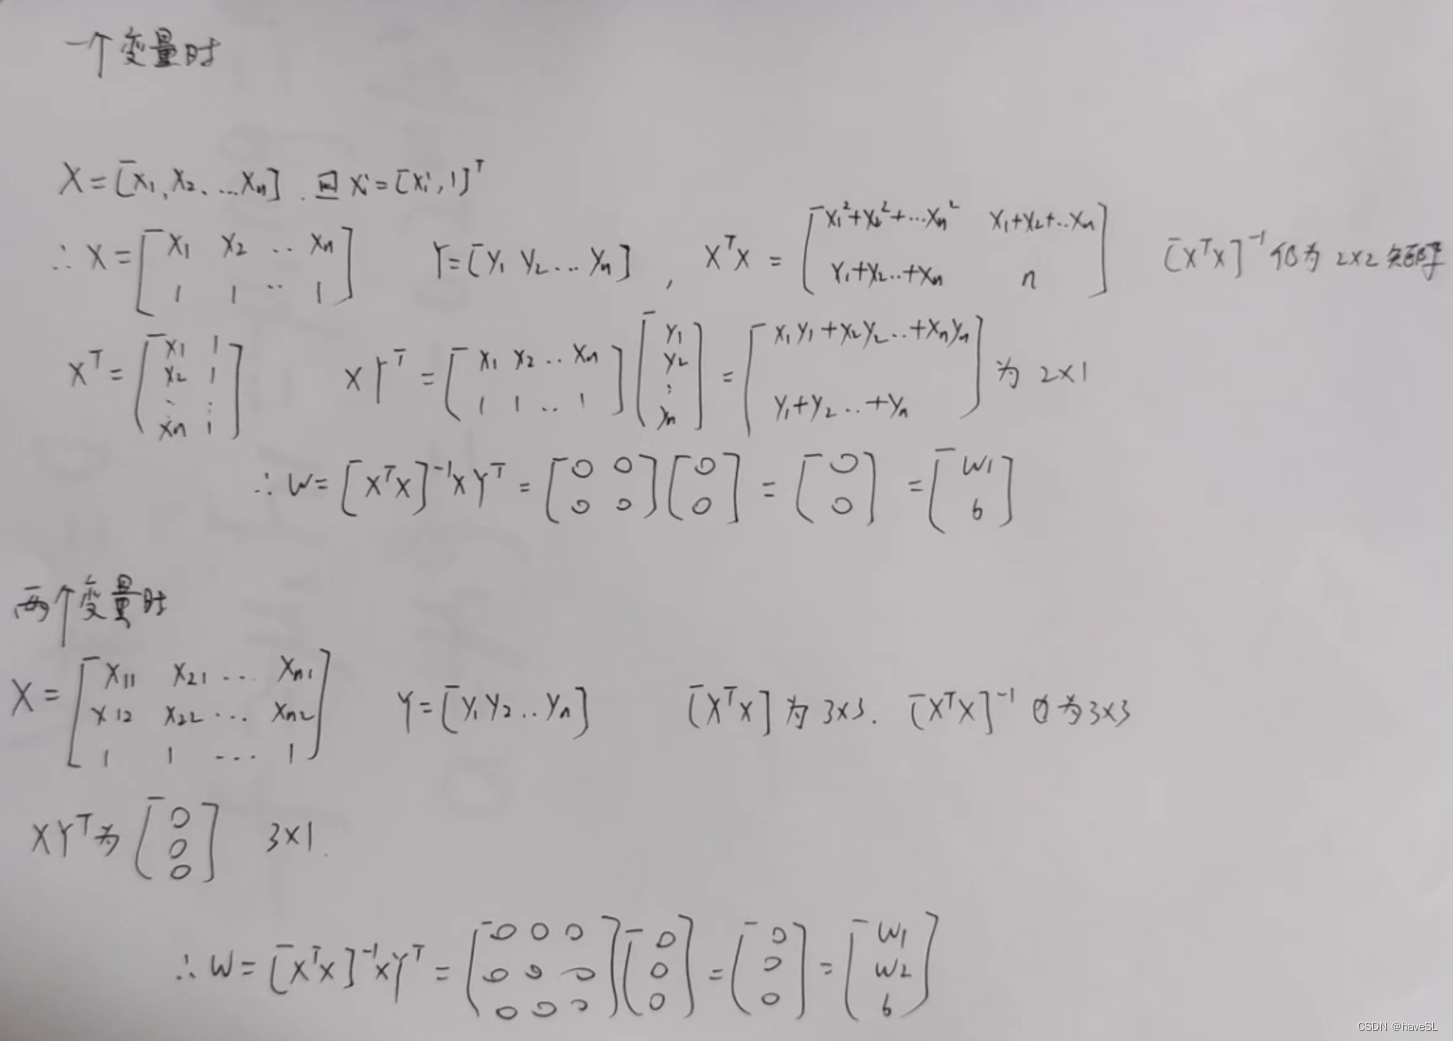 一个变量时
X = [x₁, x₂、...xₙ] . 且 xᵢ = [xᵢ, 1]ᵀ
∴ X = [x₁ x₂ .. xₙ; 1 1 .. 1] Y = [y₁ y₂ ... yₙ] , XᵀX = [x₁²+x₂²+...xₙ² x₁+x₂+..xₙ; x₁+x₂..+xₙ n] [XᵀX]⁻¹ 仍为 2×2 矩阵
Xᵀ = [x₁ 1; x₂ 1; : :; xₙ 1] XYᵀ = [x₁ x₂ .. xₙ; 1 1 .. 1] [y₁; y₂; :; yₙ] = [x₁y₁+x₂y₂..+xₙyₙ; y₁+y₂..+yₙ] 为 2×1
∴ W = [XᵀX]⁻¹XYᵀ = [0 0; 0 0] [0; 0] = [0; 0] = [w₁; b]
两个变量时
X = [x₁₁ x₂₁ ... xₙ₁; x₁₂ x₂₂ ... xₙ₂; 1 1 ... 1] Y = [y₁ y₂ .. yₙ] [XᵀX] 为 3×3. [XᵀX]⁻¹ 为 3×3
XYᵀ 为 [0; 0; 0] 3×1.
∴ W = [XᵀX]⁻¹XYᵀ = [0 0 0; 0 0 0; 0 0 0] [0; 0; 0] = [0; 0; 0] = [w₁; w₂; b]
CSDN @haveSL